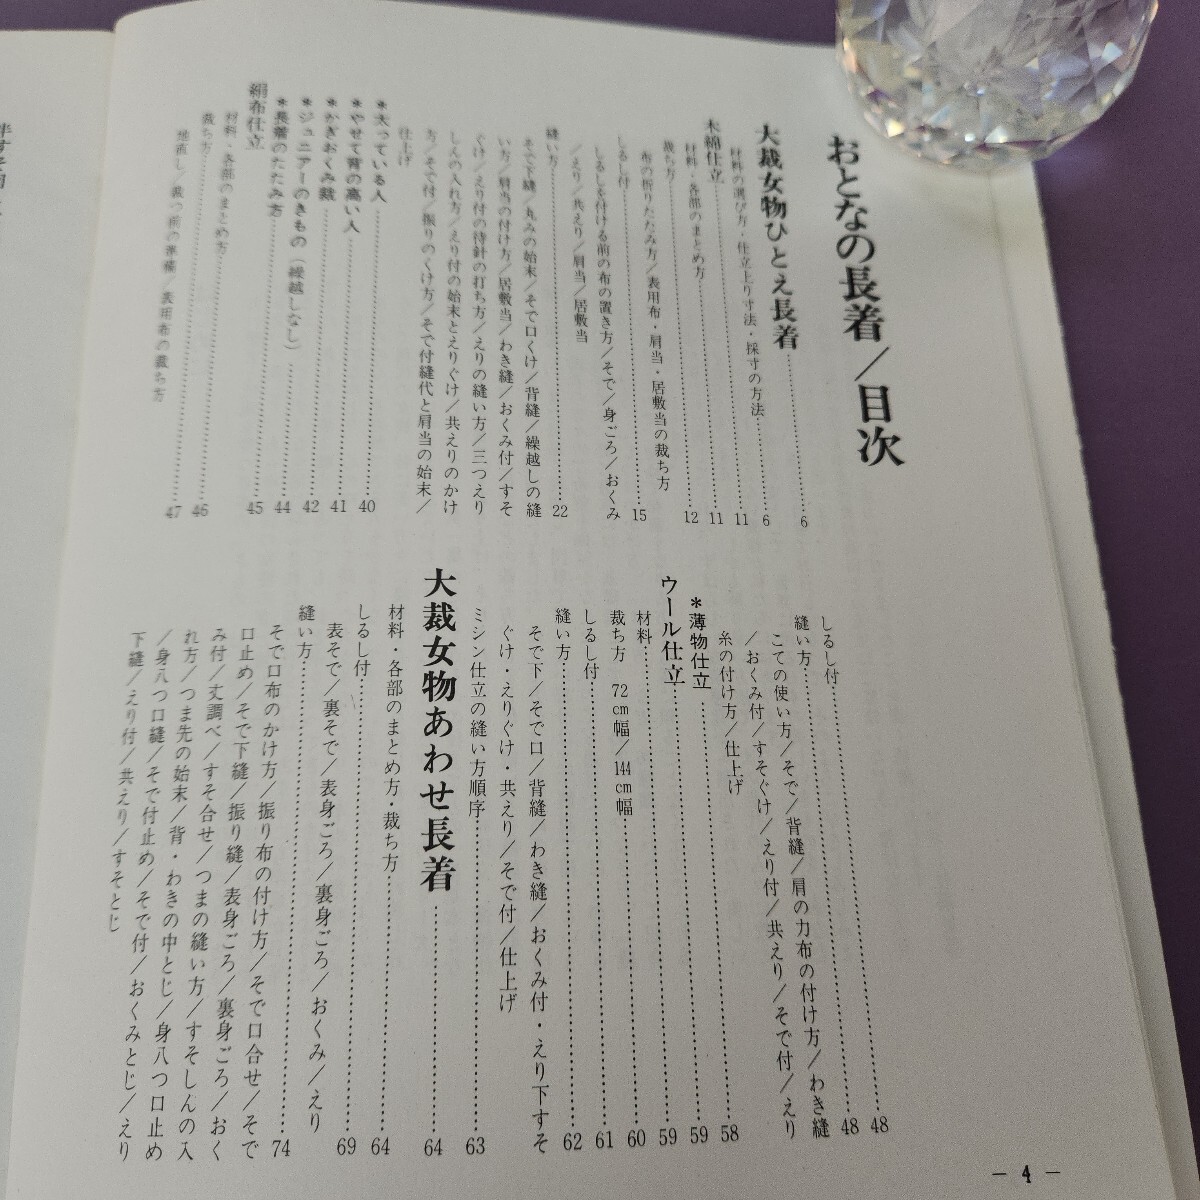 おとなの長着／目次
大裁女物ひとえ長着……6
材料の選び方・仕立上り寸法・採寸の方法……6
木綿仕立……11
材料・各部のまとめ方……11
裁ち方……12
布の折りたたみ方／表用布・肩当・居敷当の裁ち方
しるし付……15
しるしを付ける前の布の置き方／そで／身ごろ／おくみ
／えり／共えり／肩当／居敷当
縫い方……22
そで下縫／丸みの始末／そで口くけ／背縫／繰越しの縫
い方／肩当の付け方／居敷当／わき縫／おくみ付／すそ
ぐけ／えり付の待針の打ち方／えりの縫い方／三つえり
しんの入れ方／えり付の始末とえりぐけ／共えりのかけ
方／そで付／振りのくけ方／そで付縫代と肩当の始末／
仕上げ
＊太っている人……40
＊やせて背の高い人……41
＊かぎおくみ裁……42
＊ジュニアーのきもの（繰越しなし）……44
＊長着のたたみ方……45
絹布仕立
材料・各部のまとめ方……46
裁ち方……47
地直し／裁つ前の準備／表用布の裁ち方
しるし付……48
縫い方……48
こての使い方／そで／背縫／肩の力布の付け方／わき縫
／おくみ付／すそぐけ／えり付／共えり／そで付／えり
糸の付け方／仕上げ
＊薄物仕立……58
ウール仕立……59
材料……59
裁ち方　72cm幅／144cm幅……60
しるし付……61
縫い方……62
そで下／そで口／背縫／わき縫／おくみ付・えり下すそ
ぐけ・えりぐけ・共えり／そで付／仕上げ
ミシン仕立の縫い方順序……63
大裁女物あわせ長着……64
材料・各部のまとめ方・裁ち方……64
しるし付……69
表そで／裏そで／表身ごろ／裏身ごろ／おくみ／えり
縫い方……74
そで口布のかけ方／振り布の付け方／そで口合せ／そで
口止め／そで下縫／振り縫／表身ごろ／裏身ごろ／おく
み付／丈調べ／すそ合せ／つまの縫い方／すそしんの入
れ方／つま先の始末／背・わきの中とじ／身八つ口止め
／身八つ口縫／そで付止め／そで付／おくみとじ／えり
下縫／えり付／共えり／すそとじ
— 4 —